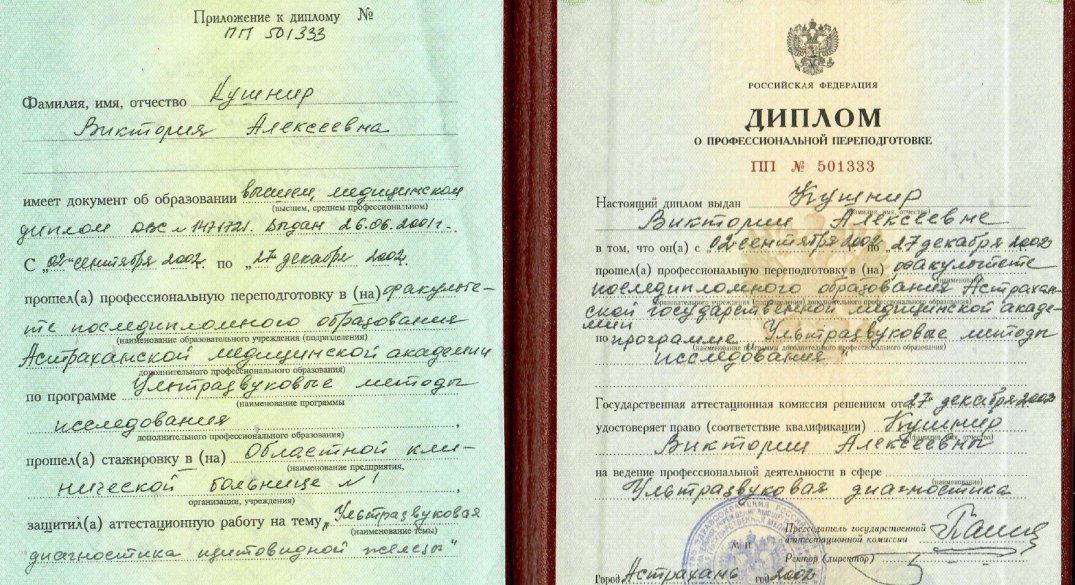 Приложение к диплому №
ПП 501333
Фамилия, имя, отчество Кушнир
Виктория Алексеевна
имеет документ об образовании высшем, медицинском
(высшем, среднем профессиональном)
диплом ДВС № 1476721. Выдан 26.06.2001г.
С „02" сентября 2002 г. по „27" декабря 2002.
прошел(а) профессиональную переподготовку в (на) факульте-
те последипломного образования
(наименование образовательного учреждения (подразделения)
Астраханской медицинской академии
дополнительного профессионального образования)
по программе Ультразвуковые методы
(наименование программы
исследования
дополнительного профессионального образования)
прошел(а) стажировку в (на) Областной кли-
(наименование предприятия,
нической больнице №1
организации, учреждения)
защитил(а) аттестационную работу на тему „Ультразвуковая
(наименование темы)
диагностика щитовидной железы"
РОССИЙСКАЯ ФЕДЕРАЦИЯ
ДИПЛОМ
О ПРОФЕССИОНАЛЬНОЙ ПЕРЕПОДГОТОВКЕ
ПП № 501333
Настоящий диплом выдан Кушнир
(фамилия, имя, отчество)
Виктории Алексеевне
в том, что он(а) с „02" сентября 2002 по „27" декабря 2002
прошел(а) профессиональную переподготовку в (на) факультете
(наименование
последипломного образования Астрахан-
образовательного учреждения (подразделения) дополнительного профессионального образования)
ской государственной медицинской акаде-
мии
по программе „Ультразвуковые методы
(наименование программы дополнительного профессионального образования)
исследования"
Государственная аттестационная комиссия решением от 27 декабря 2002
удостоверяет право (соответствие квалификации) Кушнир
(фамилия, имя, отчество)
Виктории Алексеевны
на ведение профессиональной деятельности в сфере
(наименование)
Ультразвуковая диагностика
Председатель государственной
аттестационной комиссии
Ректор (директор)
Город Астрахань год 2002